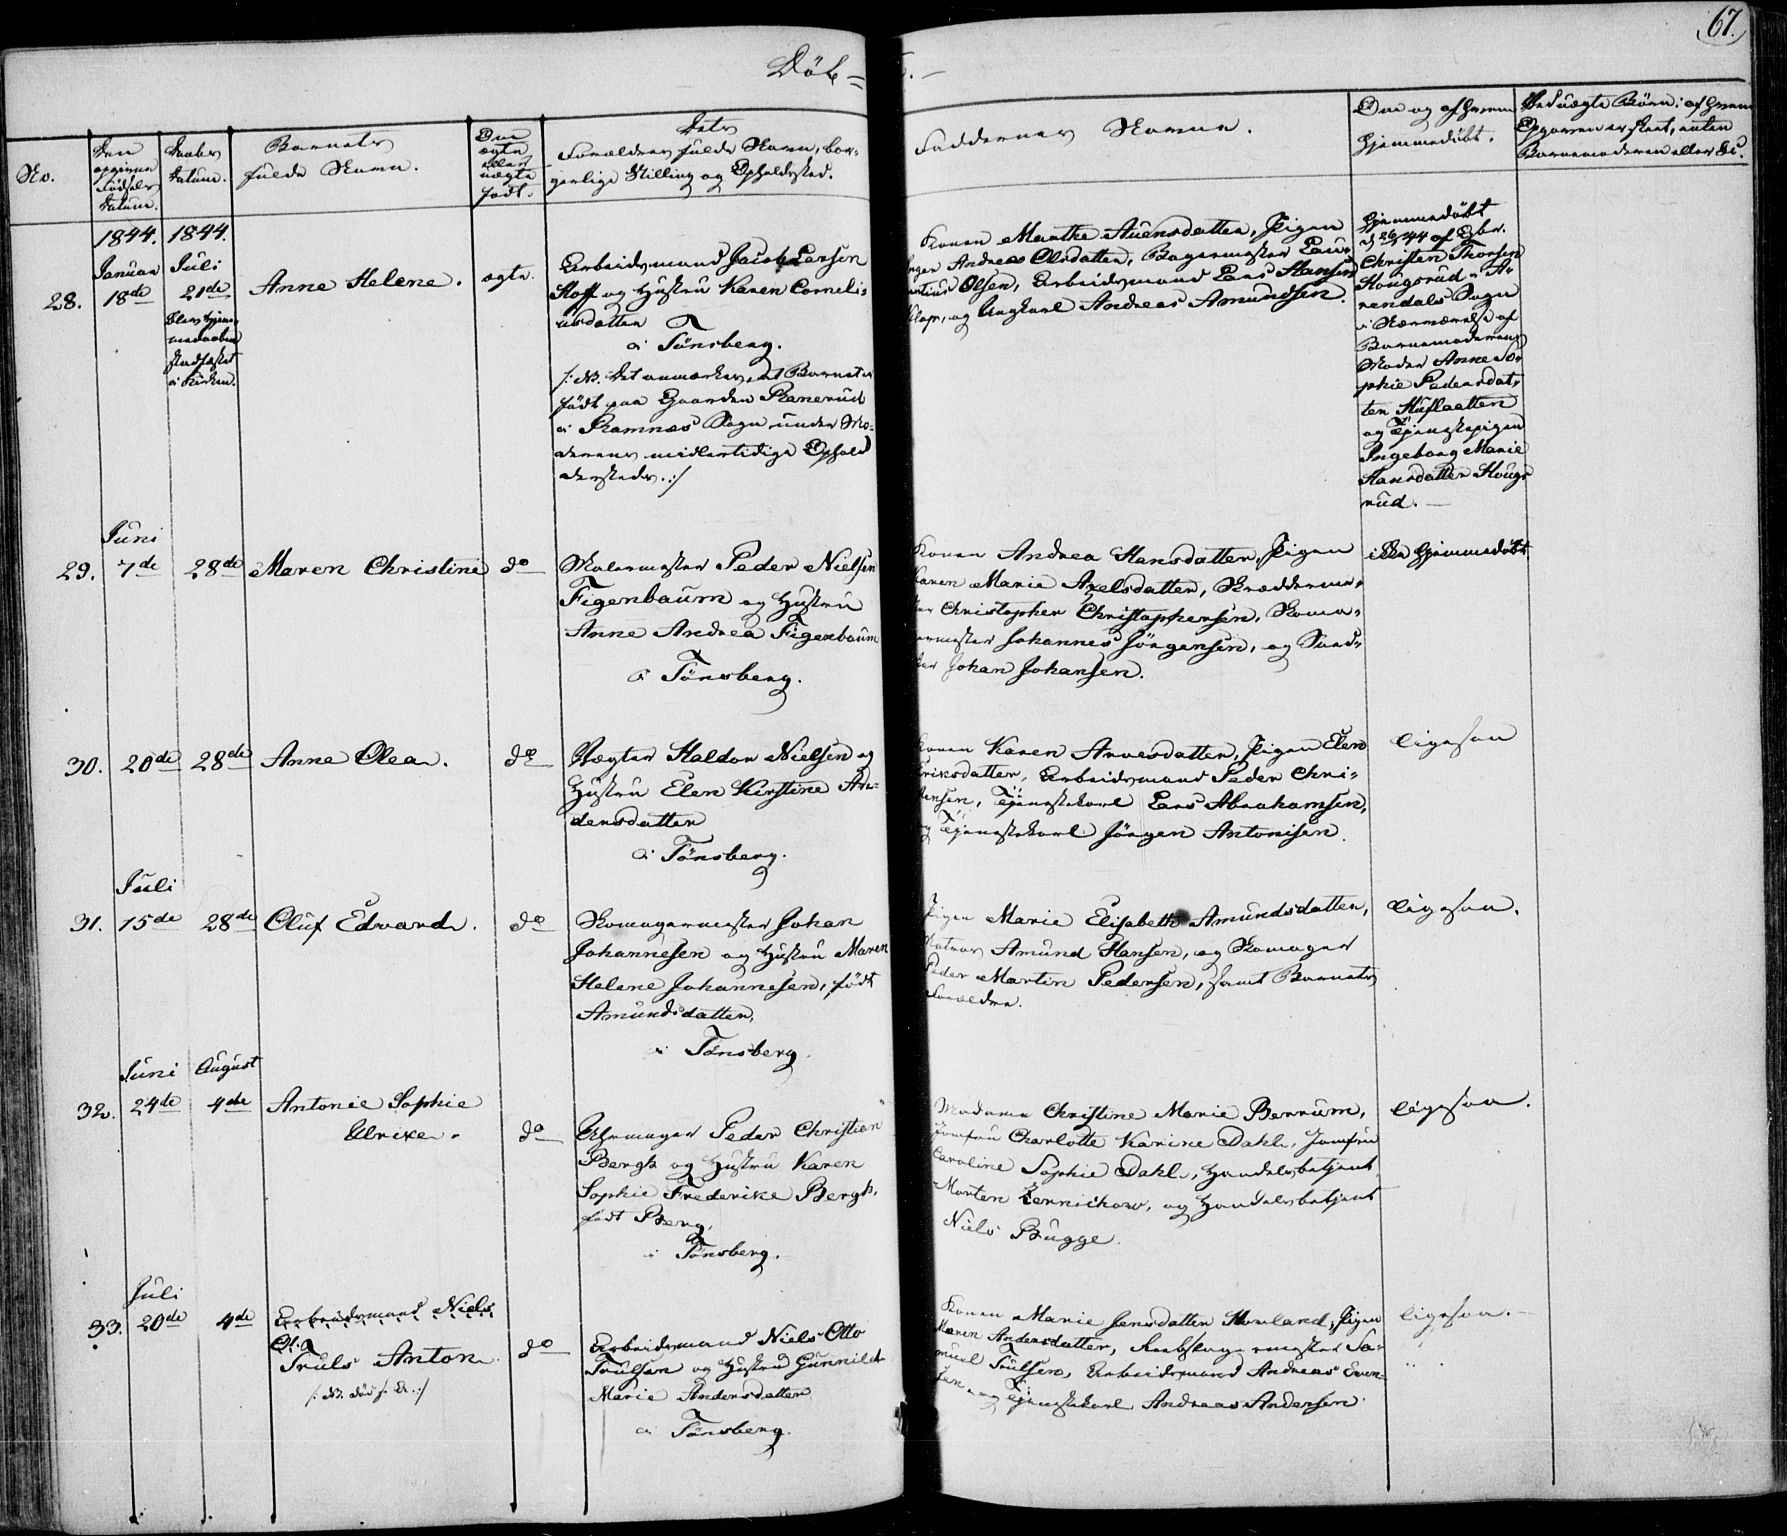 67.
Döb-
No.
Den
opgivne
Fødsels
Datum.
Daabs
Datum.
Barnets
fulde Navn.
Om
ægte
eller
uægte
født.
Dets
Forældres fulde Navn, bor-
gerlige Stilling og Opholdssted.
Faddernes Navne.
Om og af hvem
hjemmedöbt.
Ved uægte Børn: af hvem
Opgaven er skeet, enten
Barnemoderen eller
28.
1844.
Januar
18de
1844.
Juli
21de
Blev hjem-
medaaben
stadfæstet
i Kirken.
Anne Helene.
ægte.
Arbeidsmand Jacob Larsen
Hoff og Hustru Karen Corneli-
usdatter
i Tönsberg.
/: NB. Det anmærkes, at Barnet er
født paa Gaarden Ranerud
i Ramnæs Sogn under Mo-
derens midlertidige Ophold
dersteds. :/
Konen Marthe Andreas Olsdatter, Bagermester Lau-
rentius Olsen, Arbeidsmand Lars Hansen
og Ungkarl Andreas Amundsen.
Hjemmedöbt
d. 26/1 44 af Gbr.
Christen Thorsen
Hougsrud i
Sogn
i Nærværelse af
Barnemoderens
Moder Anne So-
phie Pedersdat-
ter
og Tjenestepigen
Ingeborg Marie
Hansdatter Hougs-
rud. —
29.
Juni
7de
28de
Maren Christine
do
Malermester Peder Nielsen
Figenbaum og Hustru
Anne Andrea Figenbaum
i Tönsberg.
Konen Andrea Hansdatter, Pigen
Karen Marie Axelsdatter, Skrædderme-
ster Christopher Christophersen, Skoma-
germester Johannes Jörgensen, og Sned-
ker Johan Johansen.
ikke hjemmedöbt
30.
20de
28de
Anne Olea.
do
Vægter Haldor Nielsen og
Hustru Elen Kirstine An-
dersdatter
i Tönsberg.
Konen Karen Arnesdatter, Pigen Elen
Eriksdatter, Arbeidsmand Peder Chri-
stensen, Tjenestekarl Lars Abrahamsen,
og Tjenestekarl Jörgen Antonisen.
ligesaa
31.
Juli
15de
28de
Oluf Edvard.
do
Skomagermester Johan
Johannesen og Hustru Maren
Helene Johannesen, født
Amundsdatter,
i Tönsberg.
Pigen Marie Elisabeth Amundsdatter,
Matros Amund Hansen, og Skomager
Peder Martin Pedersen, samt Barnets
Forældre.
ligesaa.
32.
Juni
24de
August
4de
Antonie Sophie
Ulrike.
do
Uhrmager Peder Christian
Bergh og Hustru Karen
Sophie Frederike Bergh,
født Berg,
i Tönsberg.
Madame Christine Marie Berrum,
Jomfru Charlotte Karine Dahl, Jomfru
Caroline Sophie Dahl, Handelsbetjent
Morten Zernichow, og Handelsbetjent
Niels Bugge.
ligesaa.
33.
Juli
20de
4de
Arbeidsmand Niels
Truls Anton.
do
Arbeidsmand Niels Otto
Trulsen og Hustru Gunnild
Marie Andersdatter
i Tönsberg.
Konen Marie Jensdatter Howland, Pigen
Maren Andersdatter, Rebslagermester Sa-
muel Trulsen, Arbeidsmand Andreas Even-
sen, og Tjenestekarl Andreas Andersen.
ligesaa. —